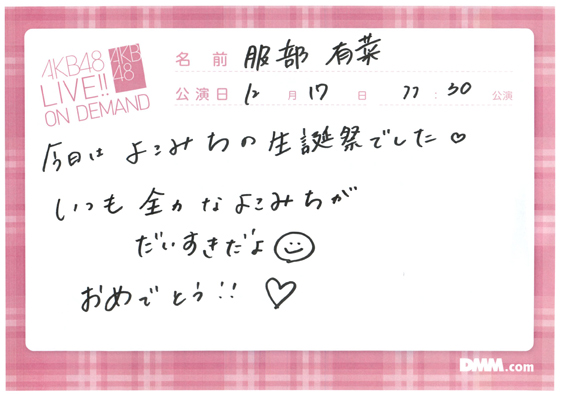 AKB48
LIVE!!
ON DEMAND
AKB
48
名前 服部 有菜
公演日 12月17日 17:30公演
今日は よこみちの生誕祭でした♡
いつも 全力なよこみちが
だいすきだよ
おめでとう!! ♡
DMM.com